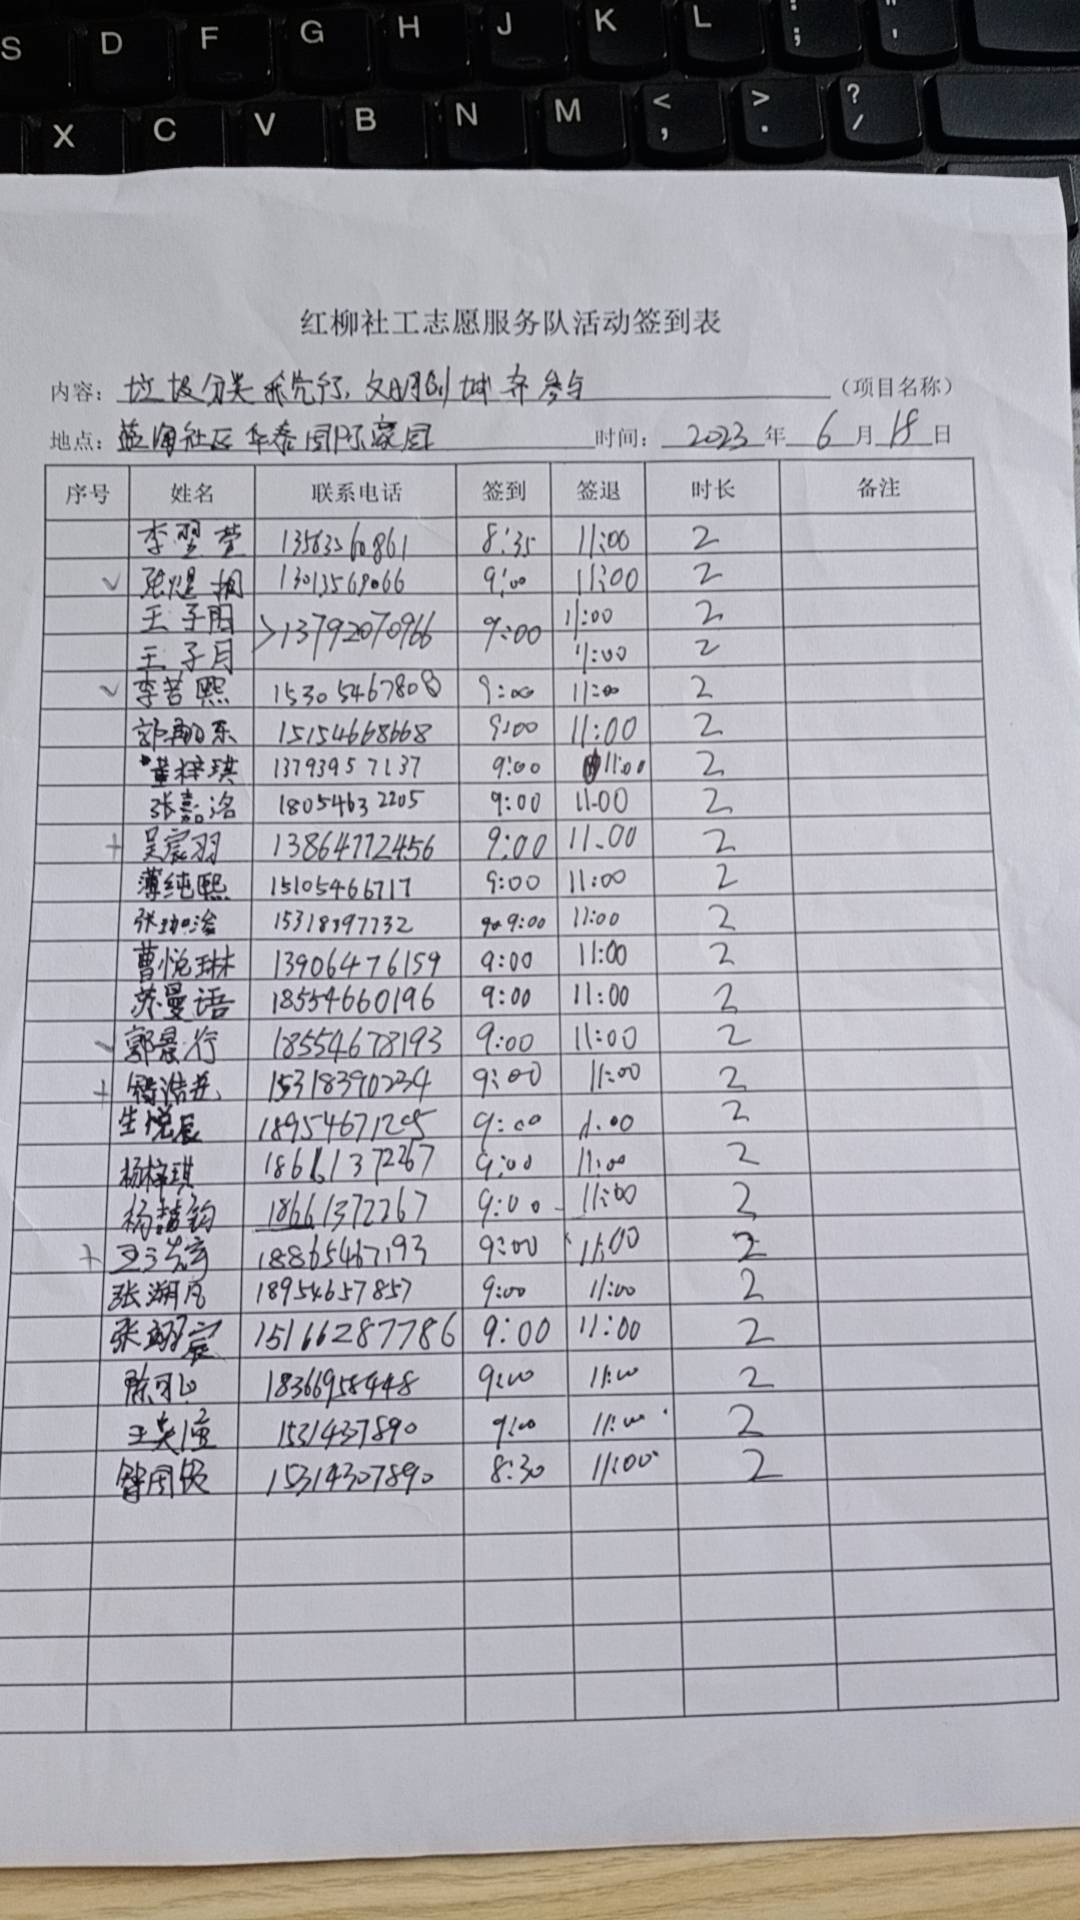 S D F G H J K L : ; " '
X C V B N M < , > . ? /
红柳社工志愿服务队活动签到表
内容: 垃圾分类我先行,文明创城齐参与 (项目名称)
地点: 蓝海社区华泰国际家园 时间: 2023 年 6 月 18 日
序号 姓名 联系电话 签到 签退 时长 备注
李翌萱 13563560861 8:35 11:00 2
张煜桐 13013569066 9:00 11:00 2
王子阳 13792070966 9:00 11:00 2
王子月 11:00 2
李苦熙 15305467808 9:00 11:00 2
郭東 15154668668 9:00 11:00 2
董梓琪 13793957137 9:00 11:00 2
张嘉洛 18054632205 9:00 11:00 2
吴宸羽 13864772456 9:00 11:00 2
薄纯熙 15105466717 9:00 11:00 2
张珈溢 15318397732 9:00 11:00 2
曹悦琳 13906476159 9:00 11:00 2
苏曼语 18554660196 9:00 11:00 2
郭景行 18554678193 9:00 11:00 2
浩 15318390234 9:00 11:00 2
生悦辰 18954671205 9:00 11:00 2
杨梓琪 18661372267 9:00 11:00 2
杨喆钧 18661372267 9:00 11:00 2
王 18865467193 9:00 11:00 2
张湖凡 18954657857 9:00 11:00 2
张翊宸 15166287786 9:00 11:00 2
陈可 18366958448 9:00 11:00 2
王奕 1531437890 9:00 11:00 2
15314307890 8:30 11:00 2